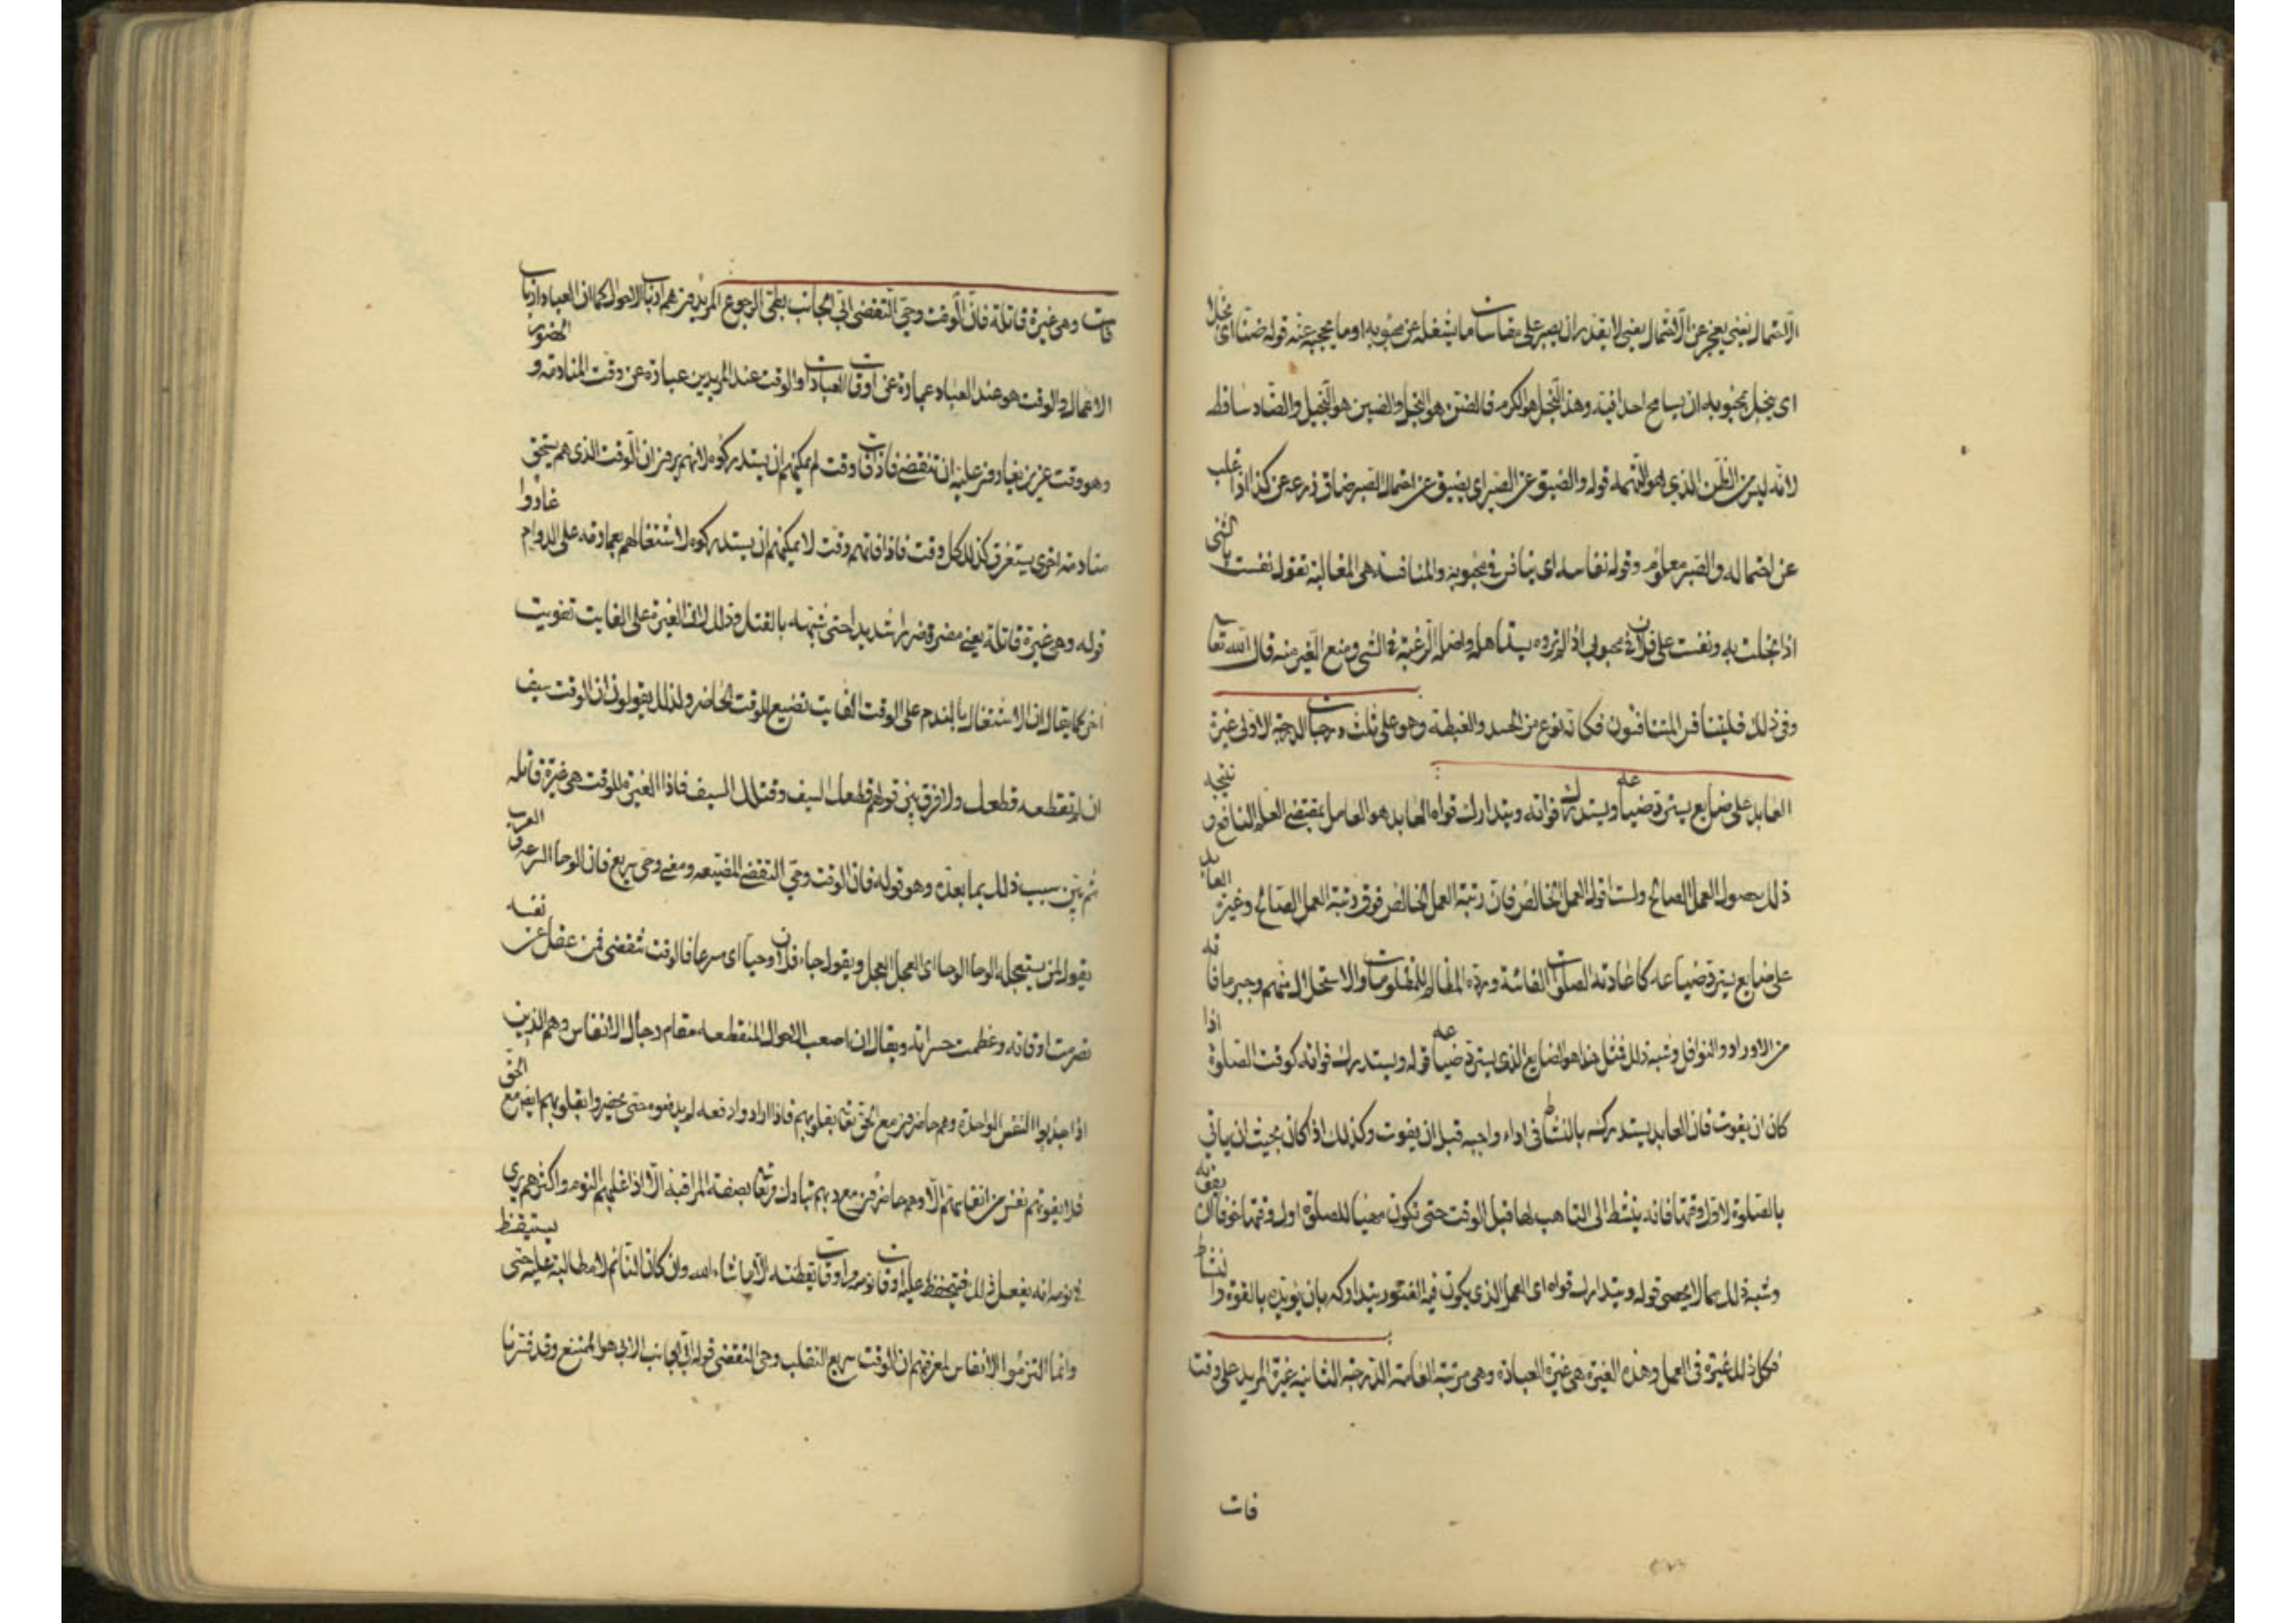 الاحتمال يعني يعجز عن الاحتمال يعني لا يقدر ان يصبر على مقاسات ما يشغله عن محبوبه او ما يحجبه عنه قوله ضنا اى بخلا
اى يبخل بمحبوبه ان يسامح احدا فيه وهذا البخل هو الكرم فالضن هو البخل والضنين هو البخيل والضاد ساقط
لانه ليس من الظن الذي هو التهمة قوله والضيق عن الصبر اى يضيق عن احتمال الصبر ضاق ذرعه عن كذا اذا غلب
عن احتماله والصبر معلوم وقوله نفاسة اى ينافس في محبوبه والمنافسة هى المغالبة تقول نفست بالشى
اذا بخلت به ونفست على فلان في محبوبى اذا لم تروه يستاهله واصله الرغبة في الشى ومنع الغير منه قال الله تعالى
وفى ذلك فليتنافس المتنافسون فكانه نوع من الحسد والغبطة وهو على ثلث درجات الدرجة الاولى غيرة
العابد على ضايع يسترد ضياعه ويستدرك فواته ويتدارك قواه العابد هو العامل بمقتضى العلم النافع ونتيجه
ذلك حصول العمل الصالح ولست اقول العمل الخالص فان رتبة العمل الخالص فوق رتبة العمل الصالح وغيرة العابد
على ضايع يسترد ضياعه كاعادته الصلوات الفائتة ورده المظالم للمظلومات والاستحلال منهم وجبر ما فاته
من الاوراد والنوافل وشبه ذلك فمثل هذا هو الضايع الذى يسترد ضياعه قوله ويستدرك فواته كوقت الصلوة اذا
كان ان يفوت فان العابد يستدركه بالنشاط فى اداء واجبه قبل ان يفوت وكذلك اذا كان بحيث ان ياتى
بالصلوة لاول وقتها فانه ينشط الى التاهب لها قبل الوقت حتى تكون مهيا للصلوة اول وقتها خوفا ان يفوته
وشبه ذلك مما لا يحصى قوله ويتدارك قواه اى العمل الذى يكون فيه الفتور يتداركه بان يؤيده بالقوة والنشاط
فكل ذلك غيرة فى العمل وهذه الغيرة هى غيرة العباد وهى مرتبة العامة الدرجة الثانية غيرة المريد على وقت
فات
فات وهى غيرة قاتلة فان الوقت وحى التقضى ابى الجانب بطى الرجوع المريدون هم ارباب الاحوال كما ان العباد ارباب
الاعمال والوقت هو عند العباد عبارة عن اوقات العبادات والوقت عند المريدين عبارة عن وقت المنادمة والحضور
وهو وقت عزيز يغارون عليه ان تنقضى فاذا فات وقت لم يمكنهم ان يستدركوه لانهم يرون ان الوقت الذى هم يستحق
منادمة اخرى يستغرق كذلك كل وقت فاذا فاتهم وقت لا يمكنهم ان يستدركوه لاشتغالهم بما وقه على الدوام غاروا
قوله وهى غيرة قاتلة يعنى مضرة ضررا شديدا حتى شبهها بالقتل وذلك لان الغيرة على الفايت تفويت
اخر كما يقال ان الاشتغال بالندم على الوقت الفايت تضييع للوقت الحاضر ولذلك يقولون ان الوقت سيف
ان لم تقطعه قطعك ولا فرق بين قولهم قطعك السيف وقتلك السيف فاذا الغيرة للوقت هى غيرة قاتلة
ثم بين سبب ذلك بما بعده وهو قوله فان الوقت وحى التقضى ومعنى وحى سريع فان الوحا السرعة والعرب
يقول لمن يستعجله الوحا الوحا اى العجل العجل ويقول جاء فلان وحيا اى سرعا فالوقت ينقضى فمن غفل عن نفسه
تصرمت اوقاته وعظمت حسراته ويقال ان اصعب الاحوال المنقطعة مقام رجال الانفاس وهم الذين
اذا جذبوا النفس الواحدة وهم حاضرون مع الحق تعالى بقلوبهم فاذا ارادوا دفعه لم يدفعوه حتى يحضروا بقلوبهم ايضا مع الحق
فلا يفوتهم نفس من انفاسهم الا وهم حاضرون مع ربهم تبارك وتعالى بصفة المراقبة الا اذا غلبهم النوم واكثرهم يرى
فى نومه انه يفعل ذلك فتحفظ عليه اوقات نومه واوقات يقظته الا ما شاء الله وان كان النائم لا مطالبة عليه حتى يستيقظ
وانما التزموا الانفاس لمعرفتهم ان الوقت سريع التقلب وحى التقضى قوله ابى الجانب الابى هو الممتنع وقد فسرنا